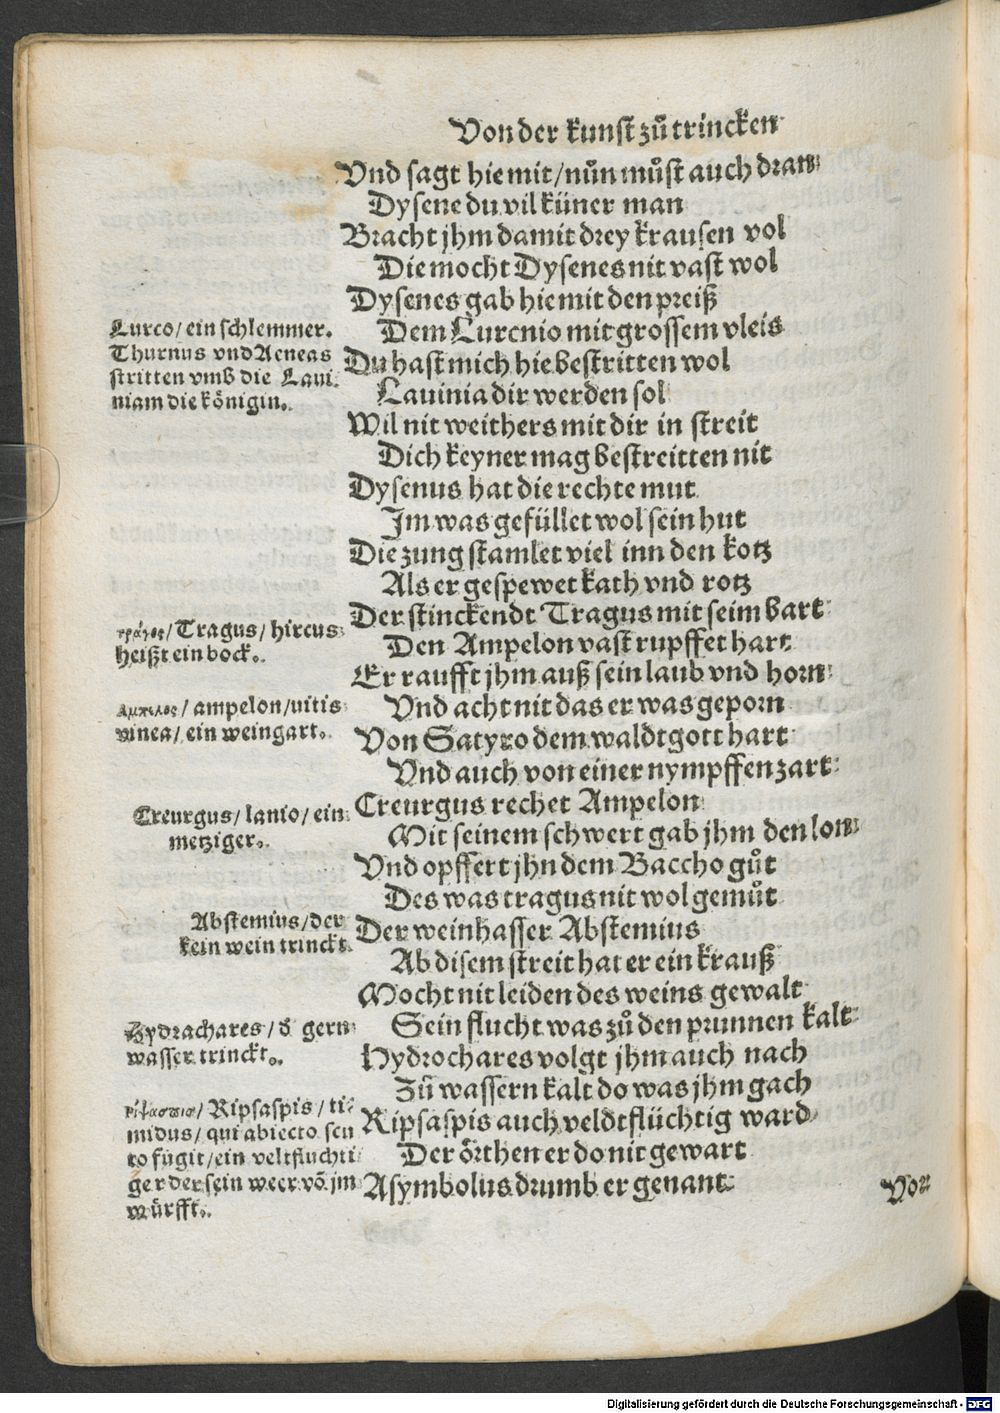 Von der kunst zů trincken
Vnd sagt hie mit / nůn můst auch dran
Dysene du vil küner man
Bracht jhm damit drey krausen vol
Die mocht Dysenes nit vast wol
Dysenes gab hie mit den preiß
Dem Lurcnio mit grossem vleis
Du hast mich hie bestritten wol
Lauinia dir werden sol
Wil nit weithers mit dir in streit
Dich keyner mag bestreitten nit
Dysenus hat die rechte mut
Jm was gefüllet wol sein hut
Die zung stamlet viel inn den kotz
Als er gespewet kath vnd rotz
Der stinckendt Tragus mit seim bart
Den Ampelon vast rupffet hart
Er raufft jhm auß sein laub vnd horn
Vnd acht nit das er was geporn
Von Satyro dem waldtgott hart
Vnd auch von einer nympffen zart
Creurgus rechet Ampelon
Mit seinem schwert gab jhm den lon
Vnd opffert jhn dem Baccho gůt
Des was tragus nit wol gemůt
Der weinhasser Abstemius
Ab disem streit hat er ein krauß
Mocht nit leiden des weins gewalt
Sein flucht was zů den prunnen kalt
Hydrochares volgt jhm auch nach
Zů wassern kalt do was jhm gach
Ripsaspis auch veldtflüchtig ward
Der örthen er do nit gewart
Asymbolus drumb er genant
Vor
Lurco / ein schlemmer.
Thurnus vnd Aeneas
stritten vmb die Laui-
niam die königin.
τράγος / Tragus / hircus
heißt ein bock.
Αμπελος / ampelon / uitis
vinea / ein weingart.
Creurgus / lanio / ein
metziger.
Abstemius / der
kein wein trinckt.
Hydrachares / d' gern
wasser trinckt.
ῥίψασπις / Ripsaspis / ti-
midus / qui abiecto scu
to fugit / ein veltfluchti
ger der sein weer võ jm
würfft.
Digitalisierung gefördert durch die Deutsche Forschungsgemeinschaft - DFG